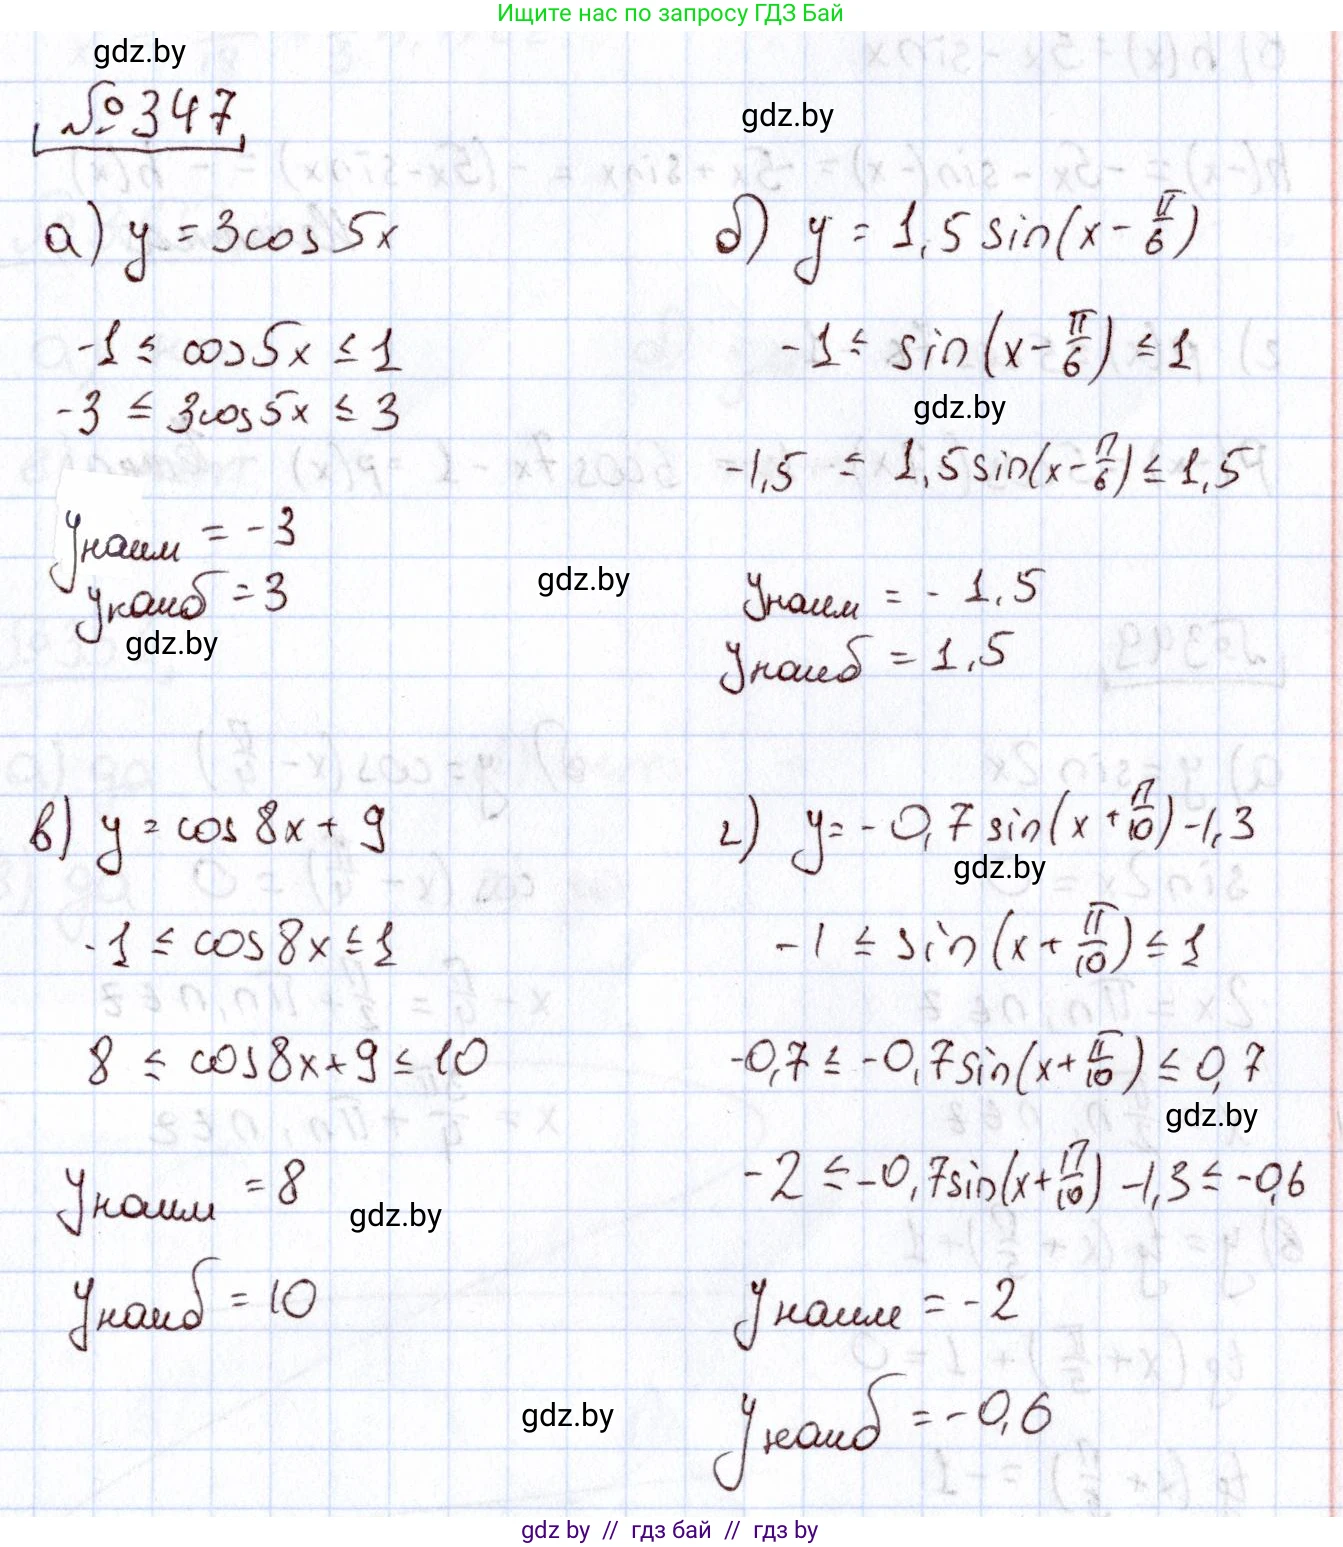 Ищите нас по запросу ГДЗ Бай
gdz.by
№347
gdz.by
а) y = 3cos 5x
-1 ≤ cos 5x ≤ 1
-3 ≤ 3cos 5x ≤ 3
yнаим = -3
yнаиб = 3
gdz.by
б) y = 1,5 sin(x - π/6)
-1 ≤ sin(x - π/6) ≤ 1
gdz.by
-1,5 ≤ 1,5 sin(x - π/6) ≤ 1,5
gdz.by
yнаим = - 1,5
yнаиб = 1,5
в) y = cos 8x + 9
-1 ≤ cos 8x ≤ 1
8 ≤ cos 8x + 9 ≤ 10
yнаим = 8
gdz.by
yнаиб = 10
г) y = - 0,7 sin(x + π/10) - 1,3
gdz.by
-1 ≤ sin(x + π/10) ≤ 1
-0,7 ≤ -0,7 sin(x + π/10) ≤ 0,7
gdz.by
-2 ≤ -0,7 sin(x + π/10) - 1,3 ≤ -0,6
yнаим = -2
yнаиб = -0,6
gdz.by
gdz by // гдз бай // гдз by